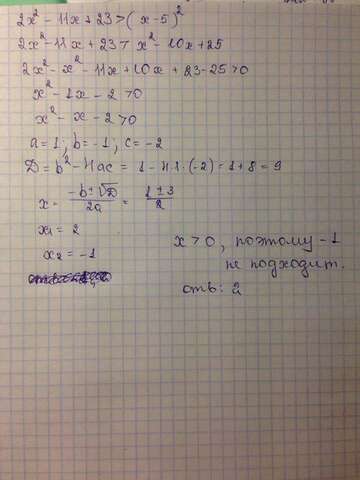 2x² - 11x + 23 > (x-5)²
2x² - 11x + 23 > x² - 10x + 25
2x² - x² - 11x + 10x + 23 - 25 > 0
x² - 1x - 2 > 0
x² - x - 2 > 0
a = 1; b = -1; c = -2
D = b² - 4ac = 1 - 4·1·(-2) = 1 + 8 = 9
x = (-b ± √D)/2a = (1 ± 3)/2
x₁ = 2
x₂ = -1
x > 0, поэтому -1
не подходит.
отв: 2